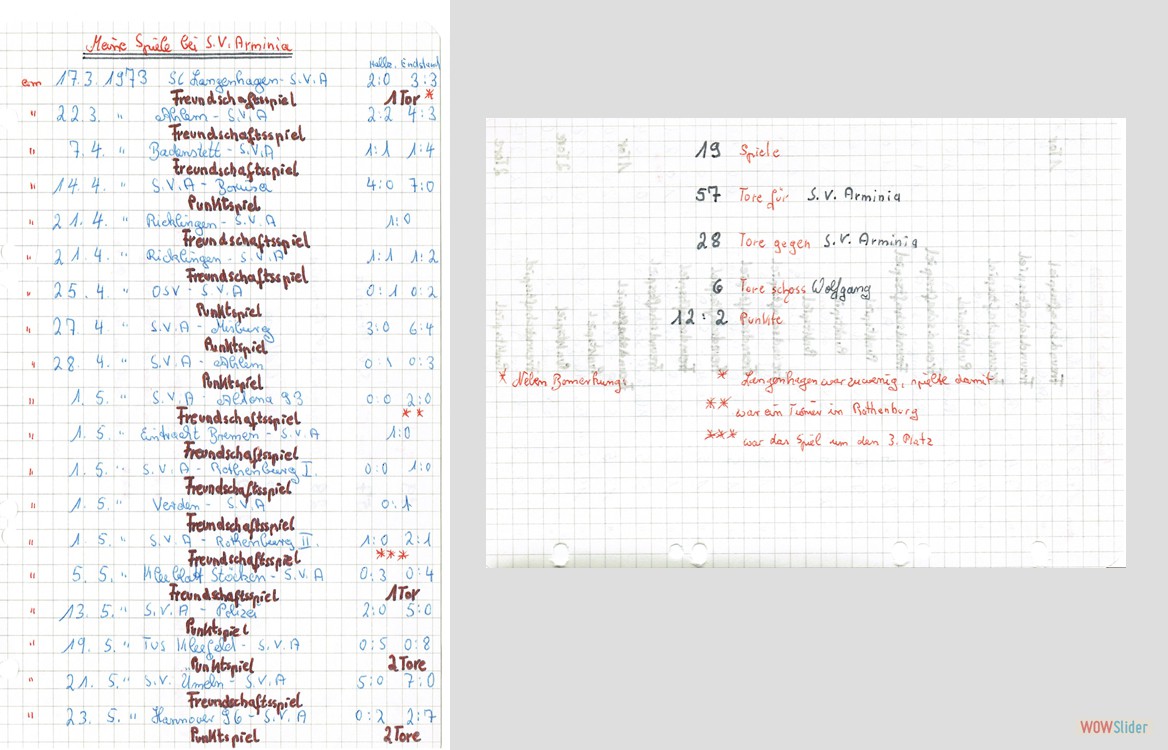 Meine Spiele bei S.V. Arminia
Halbz. Endstand
am 17.3.1973 SC Langenhagen - S.V.A 2:0 3:3
Freundschaftsspiel 1 Tor *
" 22.3. " Ahlem - S.V.A 2:2 4:3
Freundschaftsspiel
" 7.4. " Badenstett - S.V.A 1:1 1:4
Freundschaftsspiel
" 14.4. " S.V.A - Borusia 4:0 7:0
Punktspiel
" 21.4. " Ricklingen - S.V.A 1:0
Freundschaftsspiel
" 21.4. " Ricklingen - S.V.A 1:1 1:2
Freundschaftsspiel
" 25.4. " OSV - S.V.A 0:1 0:2
Punktspiel
" 27.4 " S.V.A - Misburg 3:0 6:4
Punktspiel
" 28.4. " S.V.A - Ahlem 0:1 0:3
Punktspiel
" 1.5. " S.V.A - Altona 93 0:0 2:0
Freundschaftsspiel **
" 1.5. " Eintracht Bremen - S.V.A 1:0
Freundschaftsspiel
" 1.5. " S.V.A - Rothenburg I. 0:0 1:0
Freundschaftsspiel
" 1.5. " Verden - S.V.A 0:1
Freundschaftsspiel
" 1.5. " S.V.A - Rothenburg II. 1:0 2:1
Freundschaftsspiel ***
" 5.5. " Kleeblatt Stöcken - S.V.A 0:3 0:4
Freundschaftsspiel 1 Tor
" 13.5. " S.V.A - Polizei 2:0 5:0
Punktspiel
" 19.5. " TUS Kleefeld - S.V.A 0:5 0:8
Punktspiel 2 Tore
" 21.5. " S.V. Umeln - S.V.A 5:0 7:0
Freundschaftsspiel
" 23.5. " Hannover 96 - S.V.A 0:2 2:7
Punktspiel 2 Tore
19 Spiele
57 Tore für S.V. Arminia
28 Tore gegen S.V. Arminia
6 Tore schoss Wolfgang
12:2 Punkte
* Neben Bemerkung: * Langenhagen war zuwenig, spielte damit
** war ein Turnier in Rothenburg
*** war das Spiel um den 3. Platz
WOWSlider